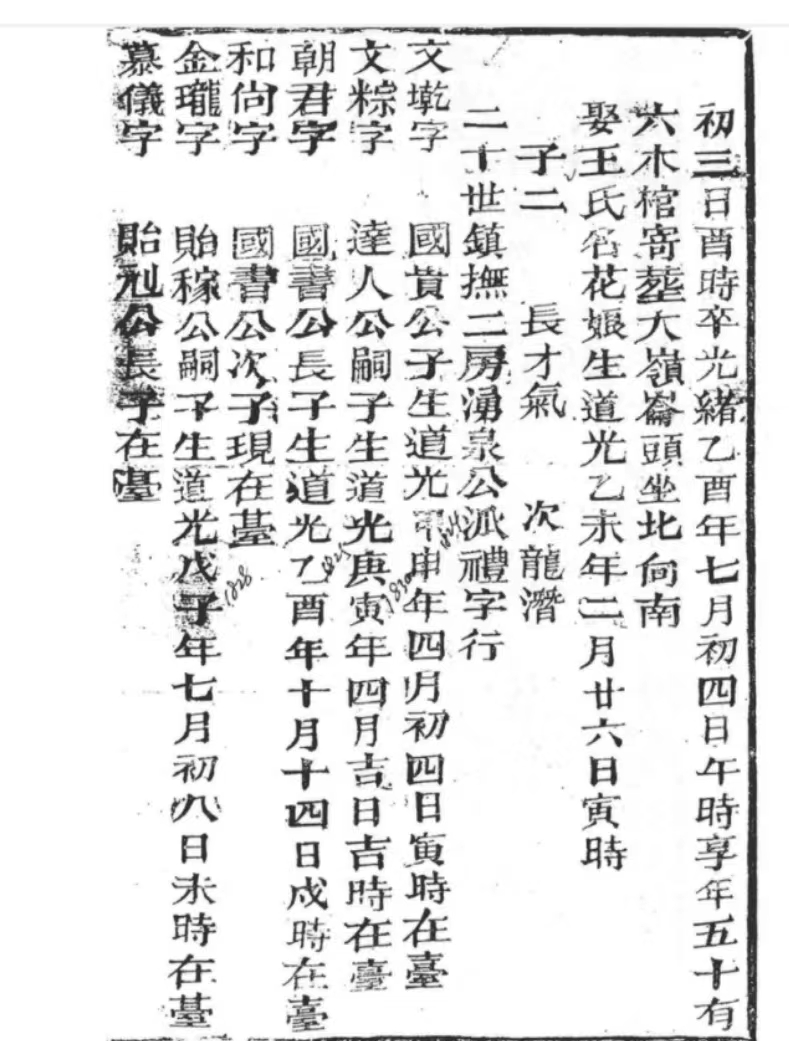 初三日酉時卒光緒乙酉年七月初四日午時享年五十有
六木棺寄塟大嶺崙頭坐北向南
娶王氏名花娘生道光乙未年二月廿六日寅時
子二 長才氣 次龍潛
二十世鎮撫二房湧泉公派禮字行
文墘字 國賁公子生道光甲申年四月初四日寅時在臺
文粽字 達人公嗣子生道光庚寅年四月吉日吉時在臺
朝君字 國書公長子生道光乙酉年十月十四日戍時在臺
和尙字 國書公次子現在臺
金瓏字 貽稼公嗣子生道光戊子年七月初八日未時在臺
慕儀字 貽公長子在臺
1824
1830
1825
1828